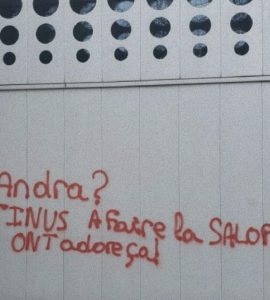 Andra?
TINUS A faire la SALOP
ONT adore ça!